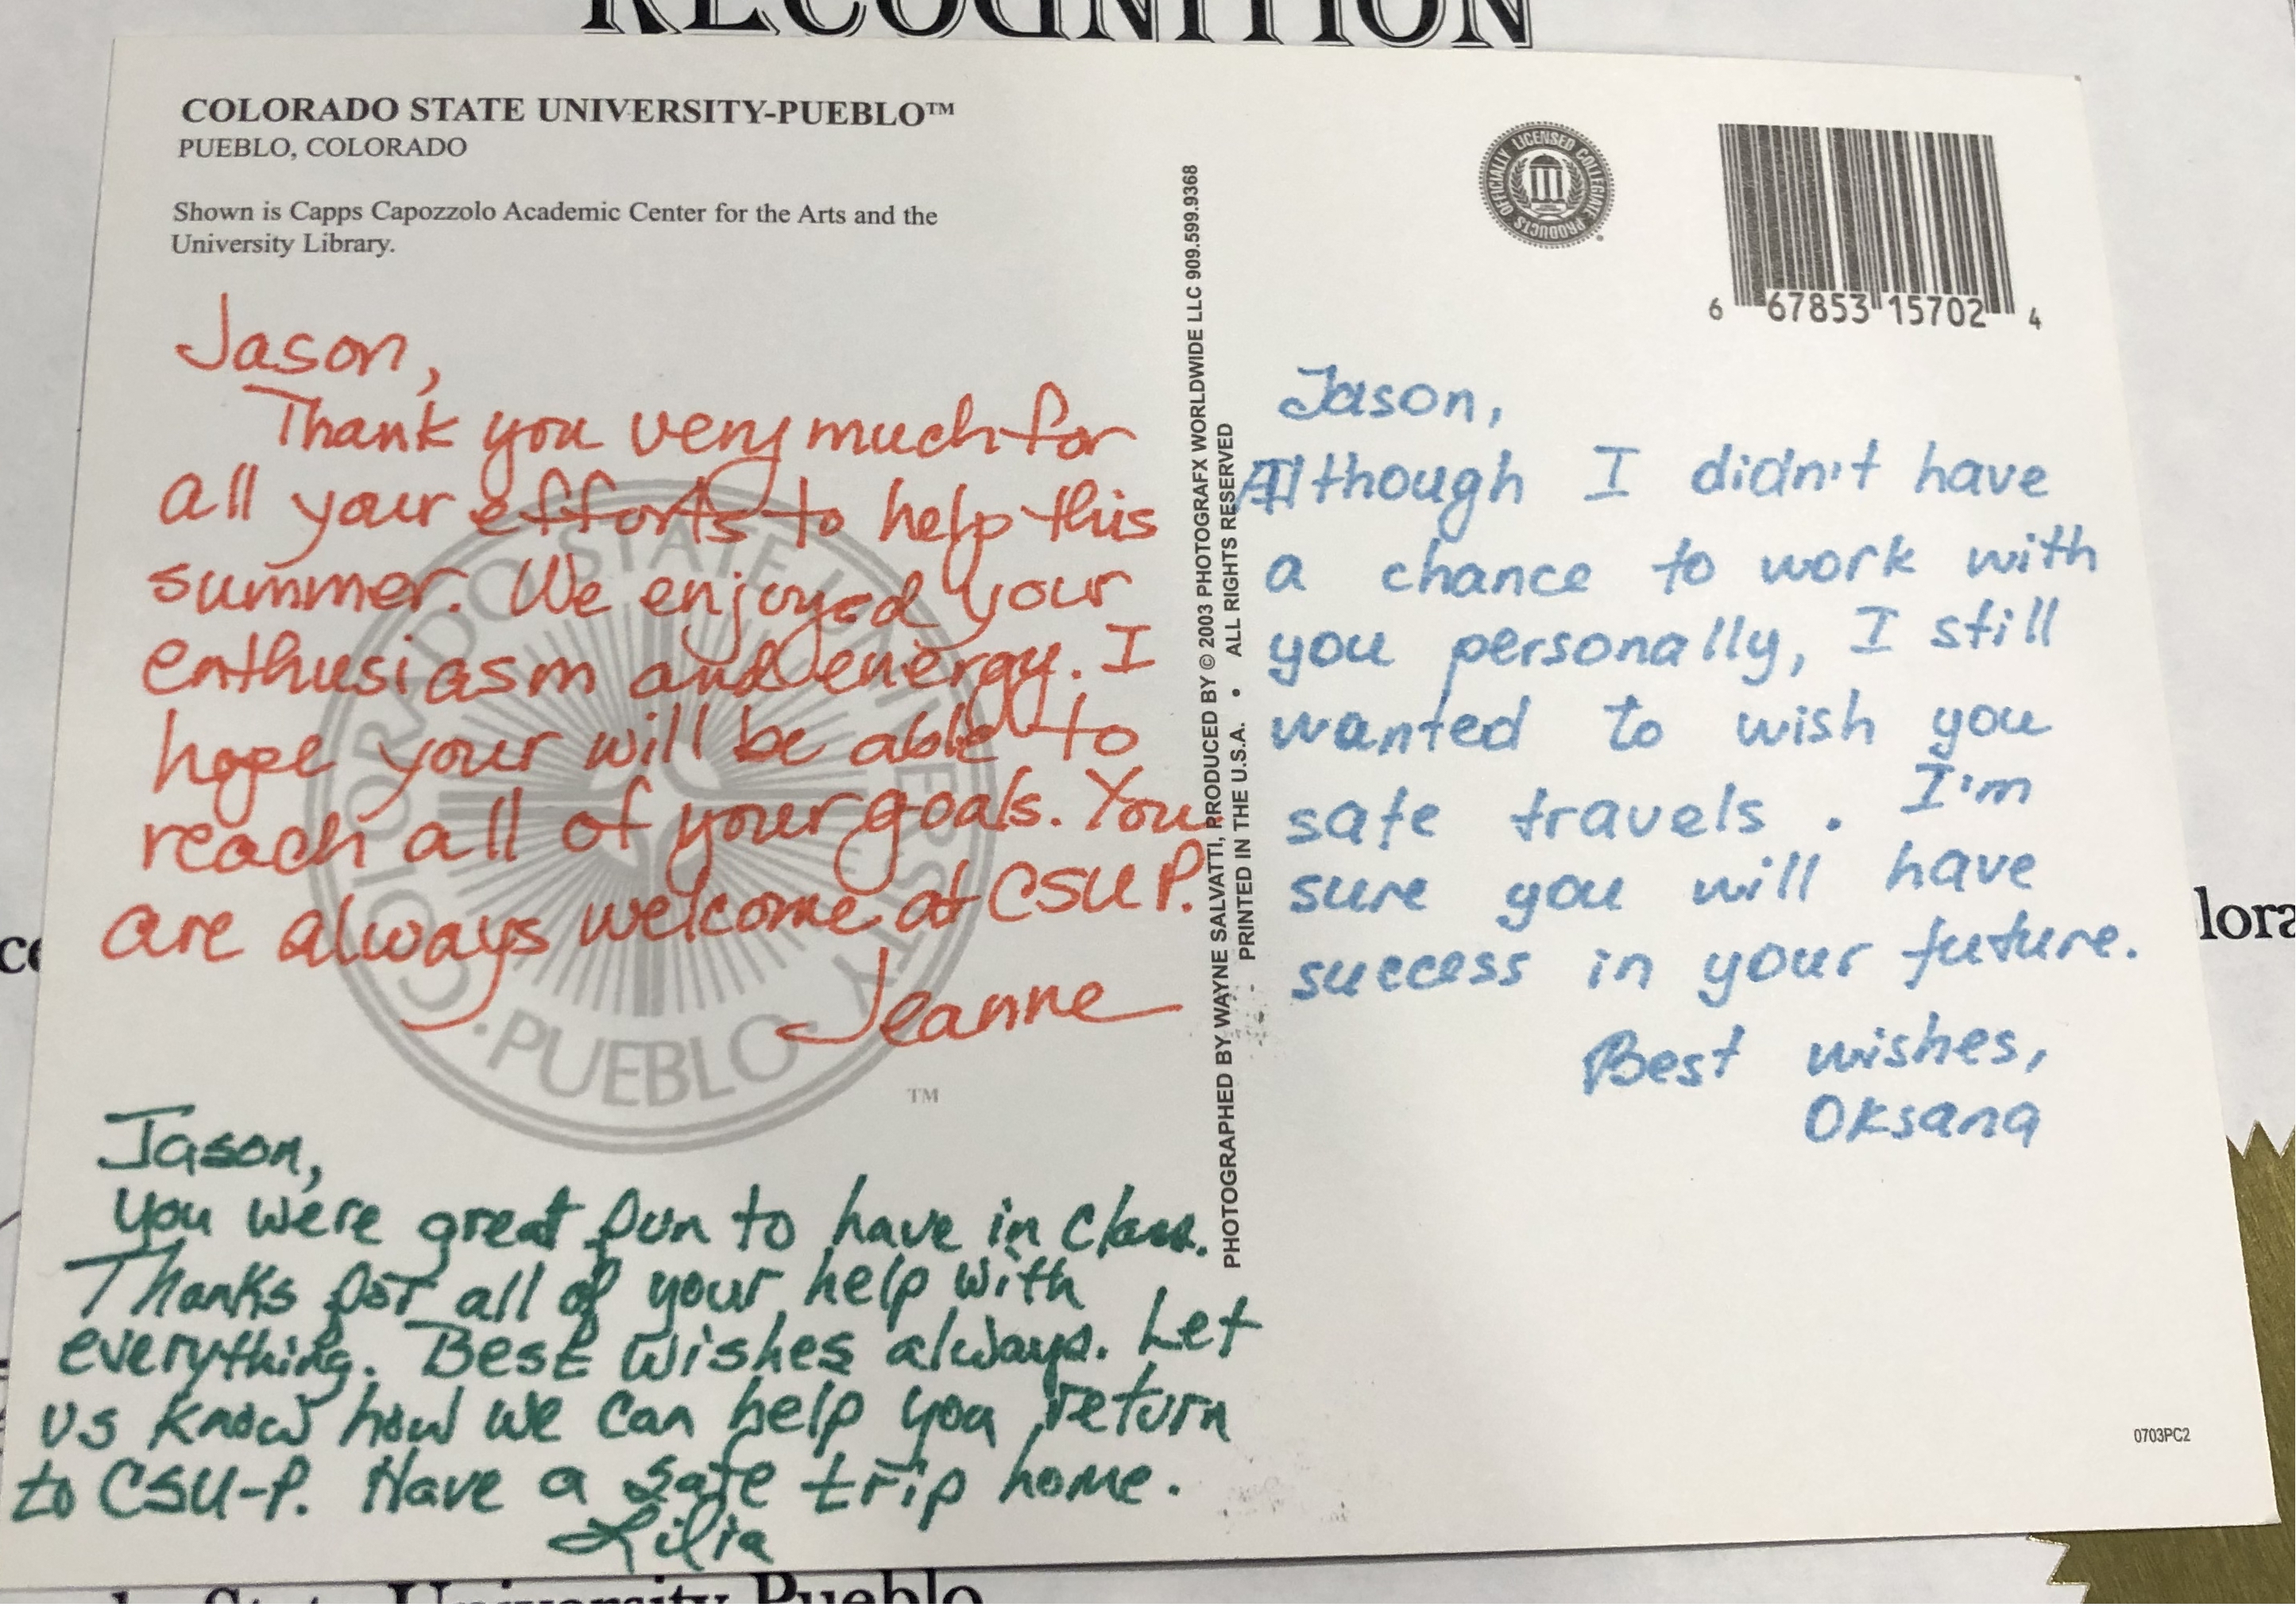 RECOGNITION
COLORADO STATE UNIVERSITY-PUEBLO™
PUEBLO, COLORADO
Shown is Capps Capozzolo Academic Center for the Arts and the
University Library.
Jason,
Thank you very much for
all your efforts to help this
summer. We enjoyed your
enthusiasm and energy. I
hope your will be able to
reach all of your goals. You
are always welcome at CSU P.
Jeanne
COLORADO STATE UNIVERSITY
· PUEBLO ·
TM
Jason,
You were great fun to have in class.
Thanks for all of your help with
everything. Best wishes always. Let
us know how we can help you return
to CSU-P. Have a safe trip home.
Lilia
PHOTOGRAPHED BY WAYNE SALVATTI, PRODUCED BY © 2003 PHOTOGRAFX WORLDWIDE LLC 909.599.9368
PRINTED IN THE U.S.A. • ALL RIGHTS RESERVED
OFFICIALLY LICENSED COLLEGIATE PRODUCTS
6 67853 15702 4
Jason,
Although I didn't have
a chance to work with
you personally, I still
wanted to wish you
safe travels. I'm
sure you will have
success in your future.
Best wishes,
Oksana
0703PC2
lora
State University Pueblo